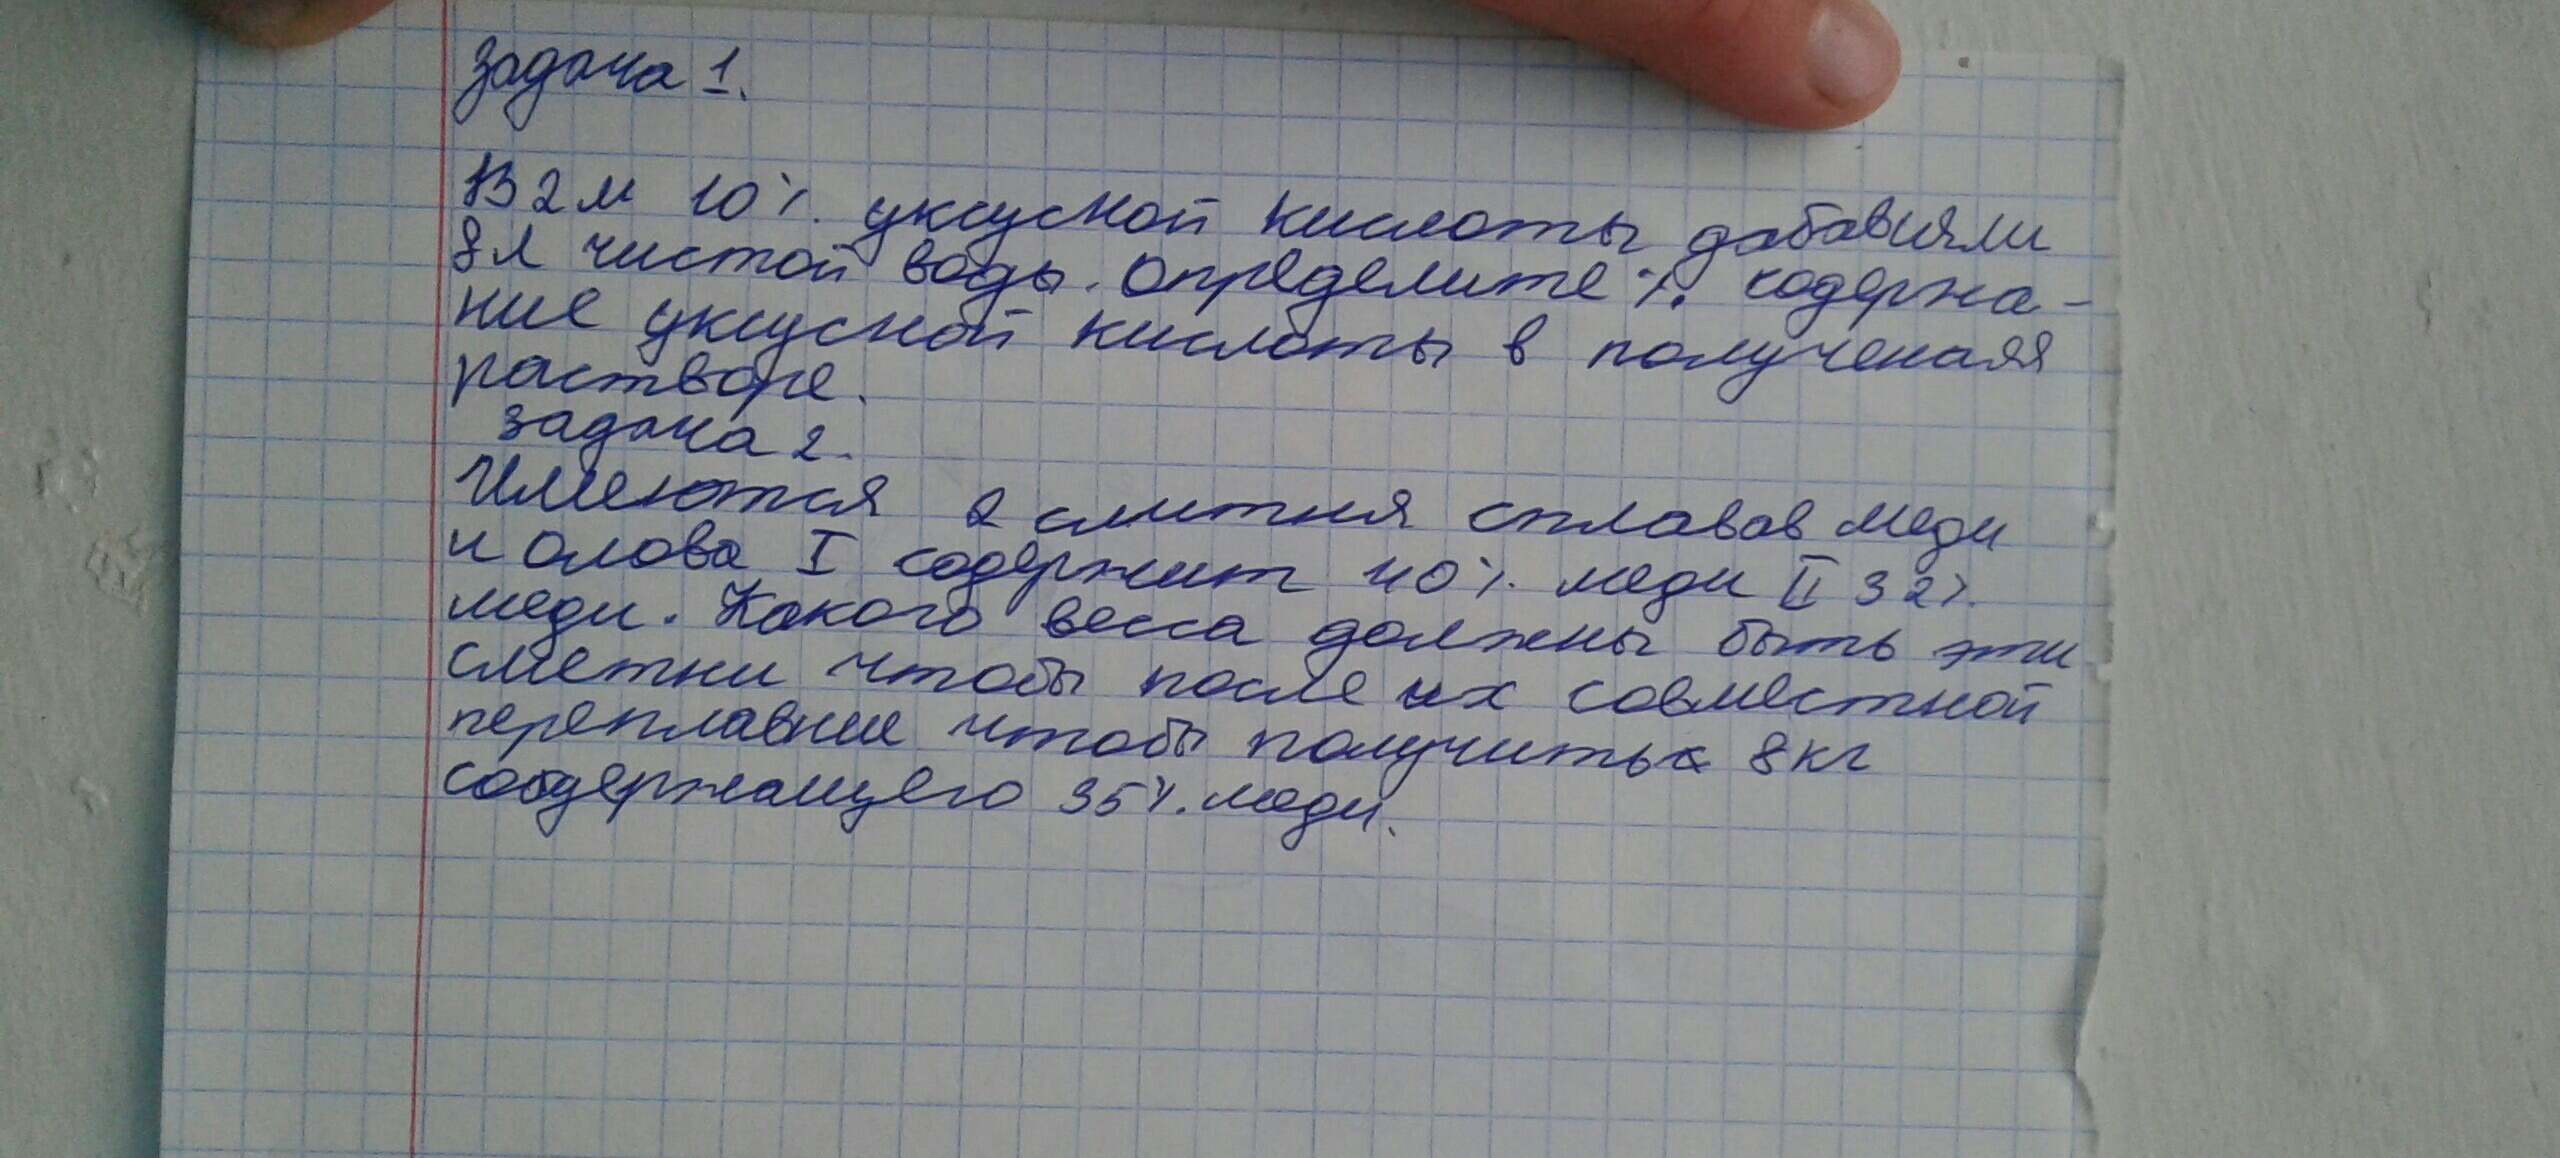 Задача 1.
В 2 л 10% уксусной кислоты добавили
8л чистой воды. Определите % содержа-
ние уксусной кислоты в полученая
растворе.
Задача 2.
Имеются 2 слитка сплавов меди
и олова I содержит 40% меди II 32%
меди. Какого веса должны быть эти
слетки чтобы после их совместной
переплавки чтобы получить 8кг
содержащего 35% меди.